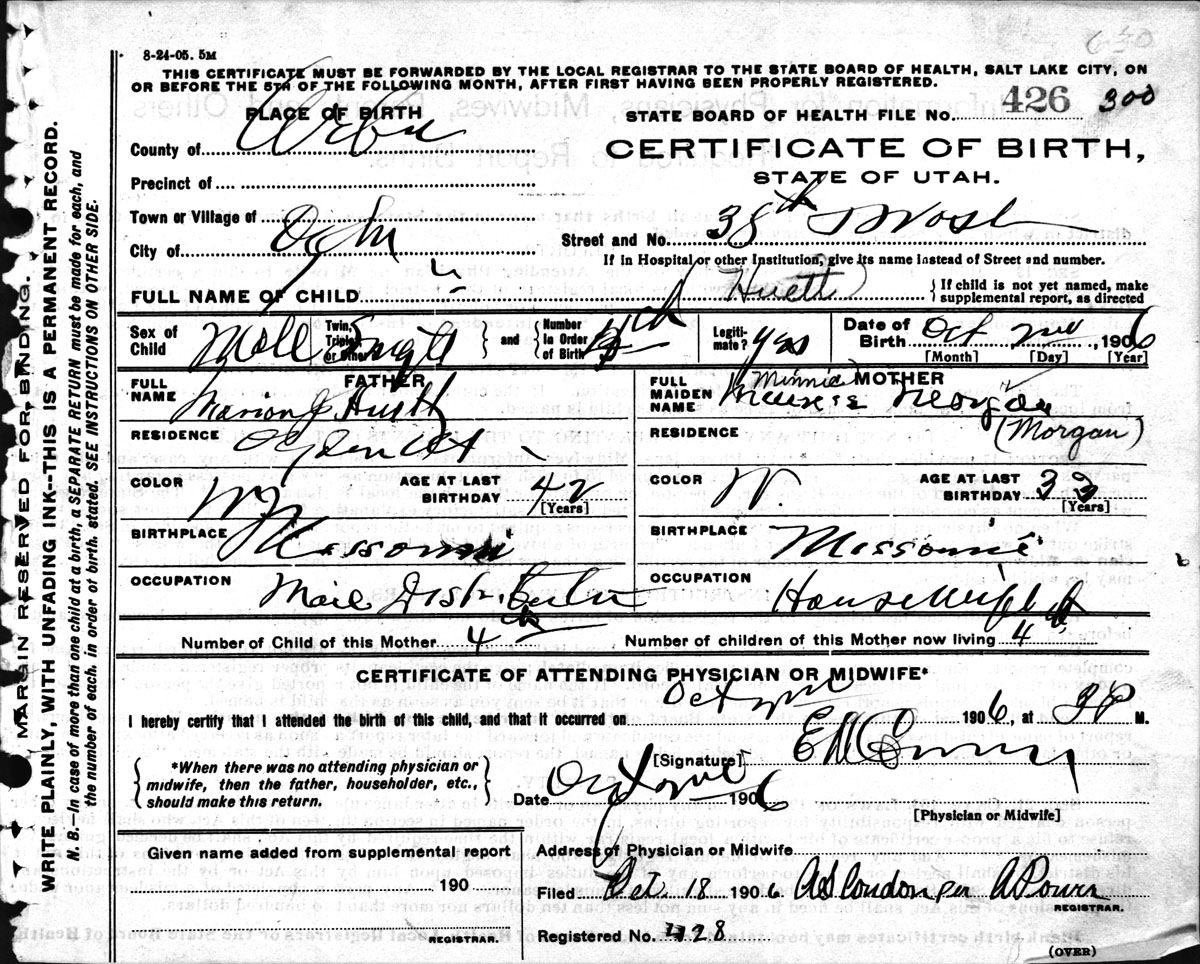 650
8-24-05. 5M
THIS CERTIFICATE MUST BE FORWARDED BY THE LOCAL REGISTRAR TO THE STATE BOARD OF HEALTH, SALT LAKE CITY, ON
OR BEFORE THE 5TH OF THE FOLLOWING MONTH, AFTER FIRST HAVING BEEN PROPERLY REGISTERED.
PLACE OF BIRTH
STATE BOARD OF HEALTH FILE NO. 426 300
County of Weber
CERTIFICATE OF BIRTH,
STATE OF UTAH.
Precinct of
Town or Village of
City of Ogden
Street and No. 38th West
If in Hospital or other Institution, give its name instead of Street and number.
FULL NAME OF CHILD Huett
{ If child is not yet named, make supplemental report, as directed
Sex of Child Male
Twin, Triplet or Other Single } and { Number in Order of Birth 4th
Legitimate? Yes
Date of Birth Oct 1906
[Month] [Day] [Year]
FATHER
FULL NAME Marion J Huett
MOTHER
FULL MAIDEN NAME (Minnie)
(Morgan)
RESIDENCE Ogden
RESIDENCE
COLOR W
AGE AT LAST BIRTHDAY 42
[Years]
COLOR W.
AGE AT LAST BIRTHDAY 33
[Years]
BIRTHPLACE Missouri
BIRTHPLACE Missouri
OCCUPATION Mail Distributer
OCCUPATION Housewife
Number of Child of this Mother 4th
Number of children of this Mother now living 4
CERTIFICATE OF ATTENDING PHYSICIAN OR MIDWIFE*
I hereby certify that I attended the birth of this child, and that it occurred on Oct 1906, at M.
{ *When there was no attending physician or midwife, then the father, householder, etc., should make this return. }
[Signature]
Date Oct 1906
[Physician or Midwife]
Given name added from supplemental report
190
REGISTRAR.
Address of Physician or Midwife
Filed Oct. 18 1906
REGISTRAR.
Registered No. 428
(OVER)
MARGIN RESERVED FOR BINDING.
WRITE PLAINLY, WITH UNFADING INK--THIS IS A PERMANENT RECORD.
N. B.--In case of more than one child at a birth, a SEPARATE RETURN must be made for each, and
the number of each, in order of birth, stated. SEE INSTRUCTIONS ON OTHER SIDE.